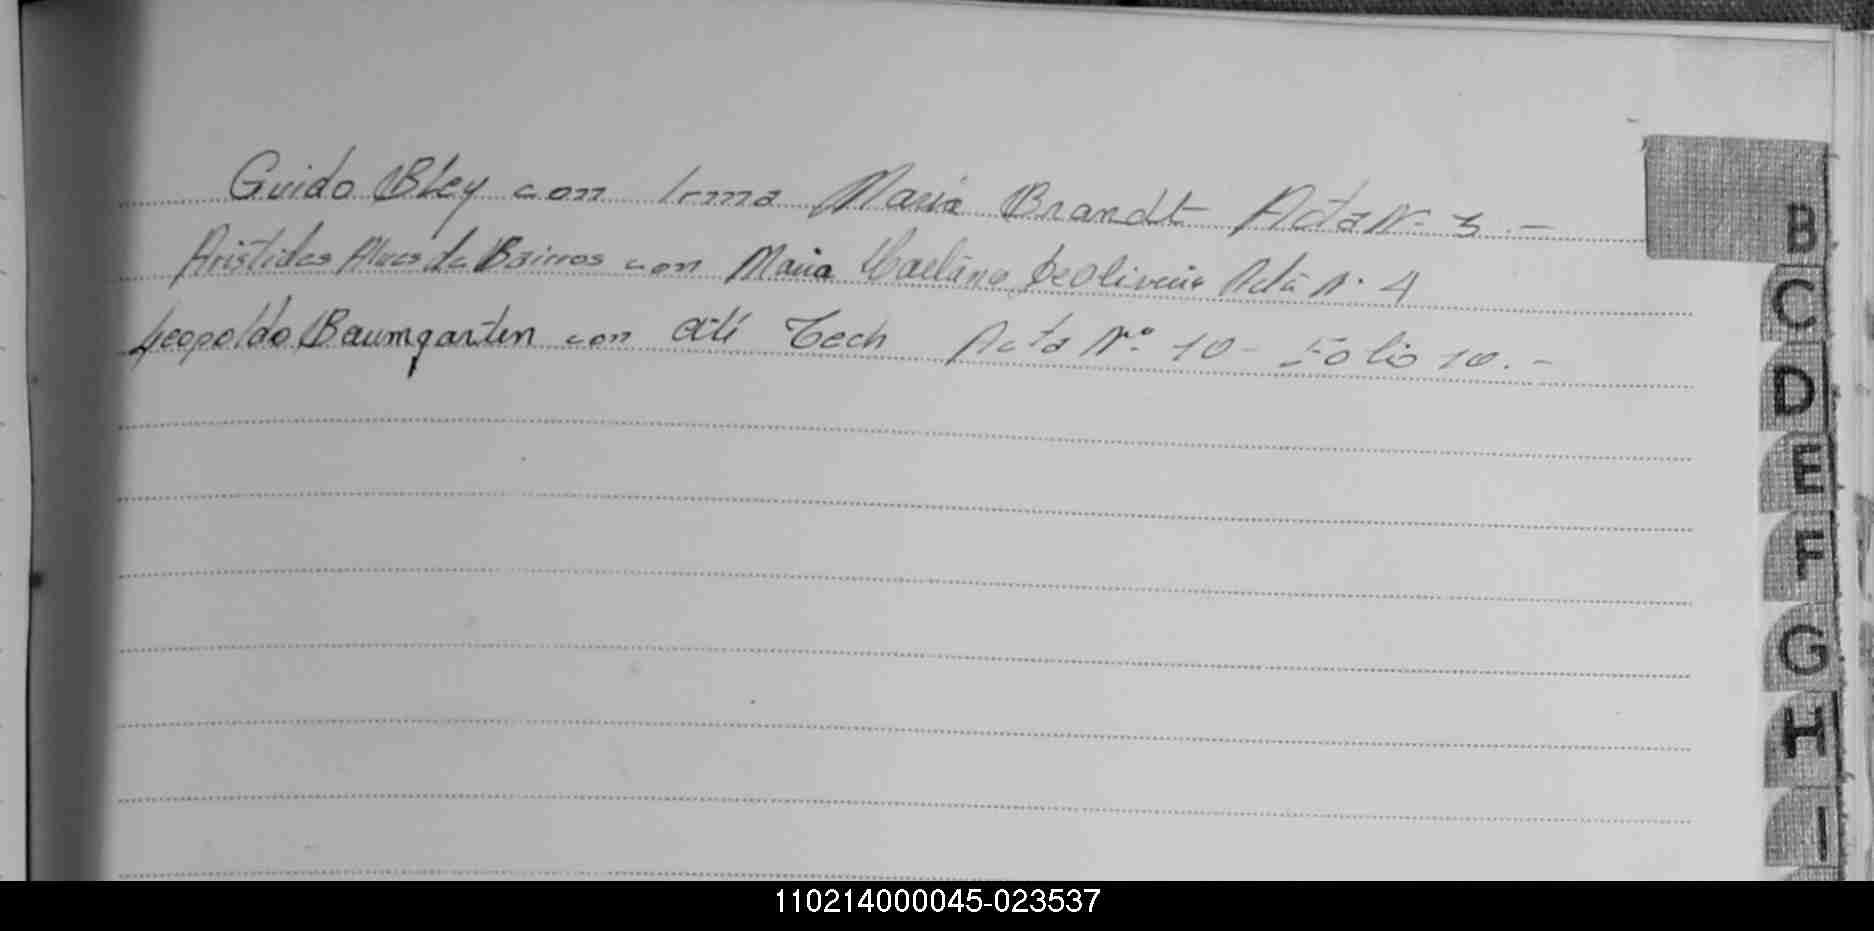 Guido Bley con Irma Maria Brandt Acta Nº 3.-
Aristides Alves de Bairros con Maria de Oliveira Acta Nº 4
Leopoldo Baumgarten con Tech Acta Nº 10 - Folio 10.-
B
C
D
E
F
G
H
I
110214000045-023537